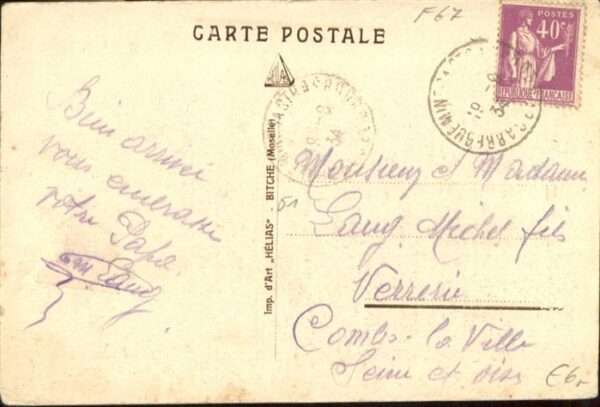 F67
CARTE POSTALE
POSTES
40c
REPUBLIQUE FRANÇAISE
SARREGUEMINES
19 - 9
34
Bien arrivé
vous embrasse
votre Papa
Lang
Imp. d'Art „HÉLIAS" - BITCHE (Moselle)
51
Monsieur et Madame
Lang Michel fils
Verrerie
Combs-la Ville
Seine et oise
€6,-